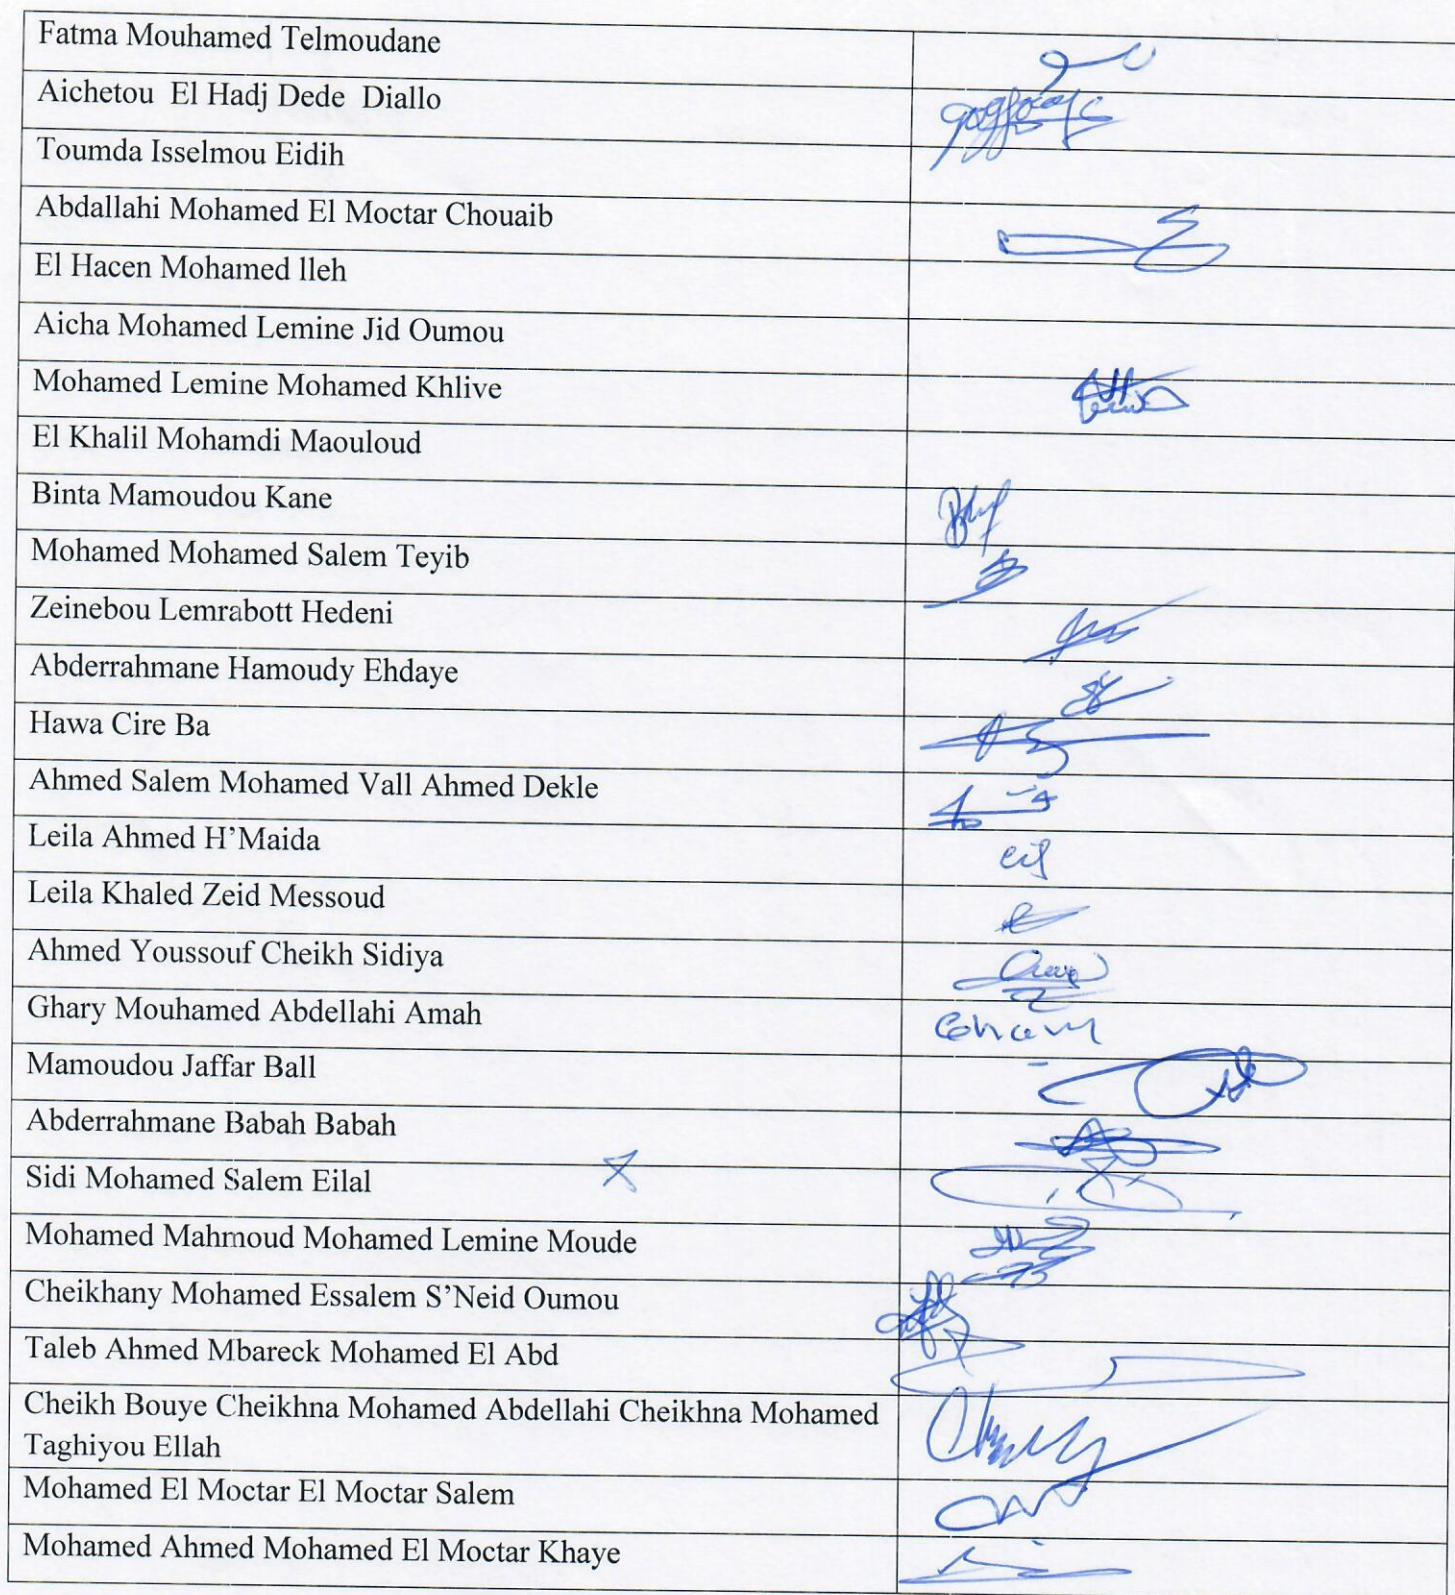 Fatma Mouhamed Telmoudane
Aichetou El Hadj Dede Diallo
Toumda Isselmou Eidih
Abdallahi Mohamed El Moctar Chouaib
El Hacen Mohamed lleh
Aicha Mohamed Lemine Jid Oumou
Mohamed Lemine Mohamed Khlive
El Khalil Mohamdi Maouloud
Binta Mamoudou Kane
Mohamed Mohamed Salem Teyib
Zeinebou Lemrabott Hedeni
Abderrahmane Hamoudy Ehdaye
Hawa Cire Ba
Ahmed Salem Mohamed Vall Ahmed Dekle
Leila Ahmed H’Maida
Leila Khaled Zeid Messoud
Ahmed Youssouf Cheikh Sidiya
Ghary Mouhamed Abdellahi Amah
Mamoudou Jaffar Ball
Abderrahmane Babah Babah
Sidi Mohamed Salem Eilal
Mohamed Mahmoud Mohamed Lemine Moude
Cheikhany Mohamed Essalem S’Neid Oumou
Taleb Ahmed Mbareck Mohamed El Abd
Cheikh Bouye Cheikhna Mohamed Abdellahi Cheikhna Mohamed
Taghiyou Ellah
Mohamed El Moctar El Moctar Salem
Mohamed Ahmed Mohamed El Moctar Khaye